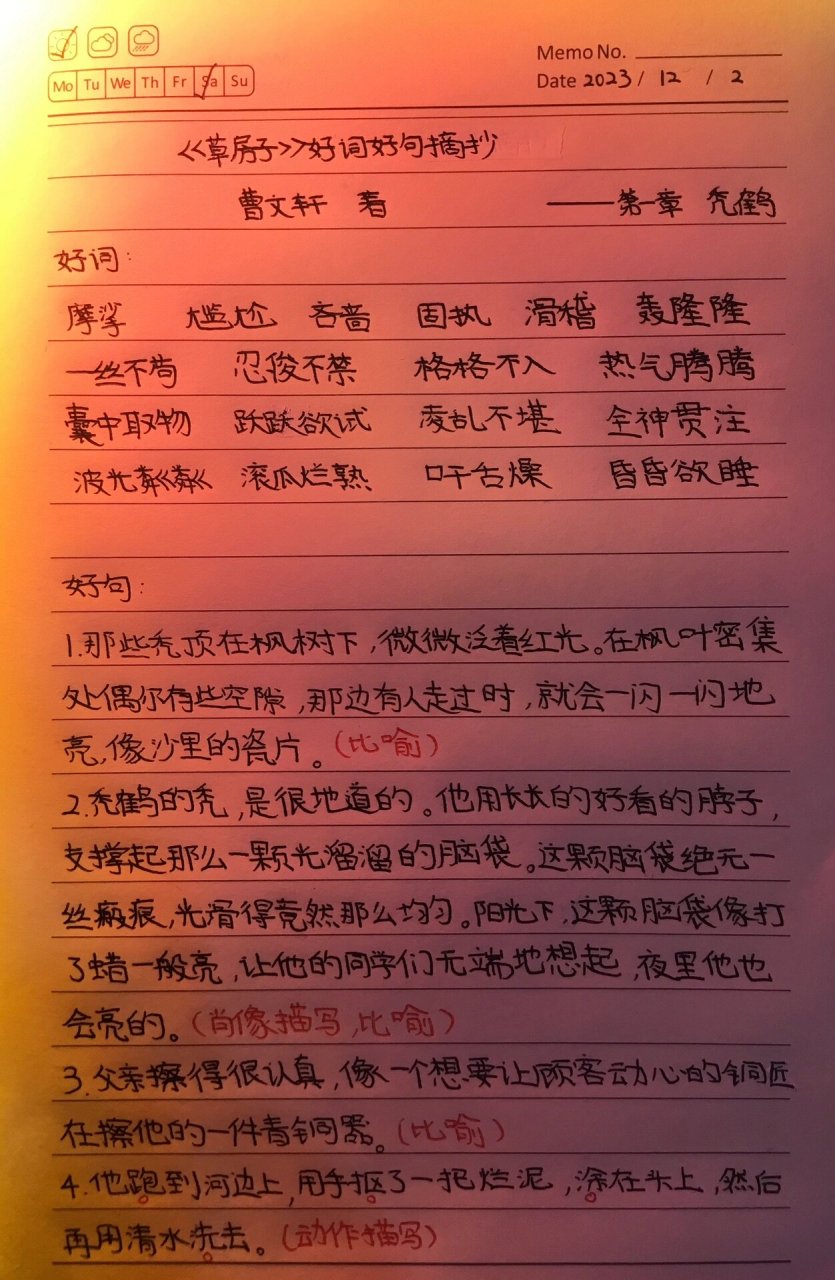 Memo No.
Mo Tu We Th Fr Sa Su
Date 2023 / 12 / 2
<<草房子>>好词好句摘抄
曹文轩 著 ——第一章 秃鹤
好词:
摩挲 尴尬 吝啬 固执 滑稽 轰隆隆
一丝不苟 忍俊不禁 格格不入 热气腾腾
囊中取物 跃跃欲试 凌乱不堪 全神贯注
波光粼粼 滚瓜烂熟 口干舌燥 昏昏欲睡
好句:
1.那些秃顶在枫树下,微微泛着红光。在枫叶密集
处偶尔有些空隙,那边有人走过时,就会一闪一闪地
亮,像沙里的瓷片。(比喻)
2.秃鹤的秃,是很地道的。他用长长的好看的脖子,
支撑起那么一颗光溜溜的脑袋。这颗脑袋绝无一
丝瘢痕,光滑得竟然那么均匀。阳光下,这颗脑袋像打
了蜡一般亮,让他的同学们无端地想起,夜里他也
会亮的。(肖像描写,比喻)
3.父亲擦得很认真,像一个想要让顾客动心的铜匠
在擦他的一件青铜器。(比喻)
4.他跑到河边上,用手抠了一把烂泥,涂在头上,然后
再用清水洗去。(动作描写)